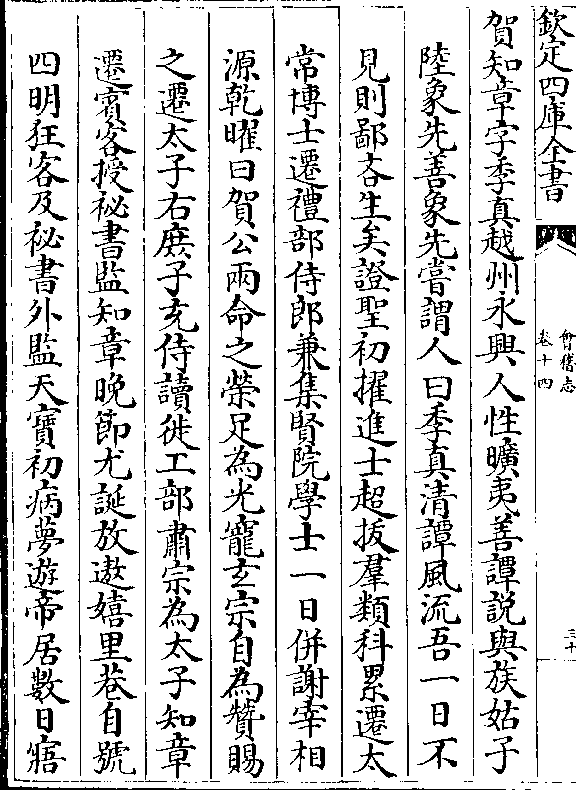 欽定四庫全書
會稽志
卷十四
三十
賀知章字季真越州永興人性曠夷善譚説與族姑子
陸象先善象先嘗謂人曰季真清譚風流吾一日不
見則鄙吝生矣證聖初擢進士超拔羣類科累遷太
常博士遷禮部侍郎兼集賢院學士一日併謝宰相
源乾曜曰賀公兩命之榮足為光寵玄宗自為贊賜
之遷太子右庶子充侍讀徙工部肅宗為太子知章
遷賓客授祕書監知章晚節尤誕放遨嬉里巷自號
四明狂客及祕書外監天寶初病夢遊帝居數日寤